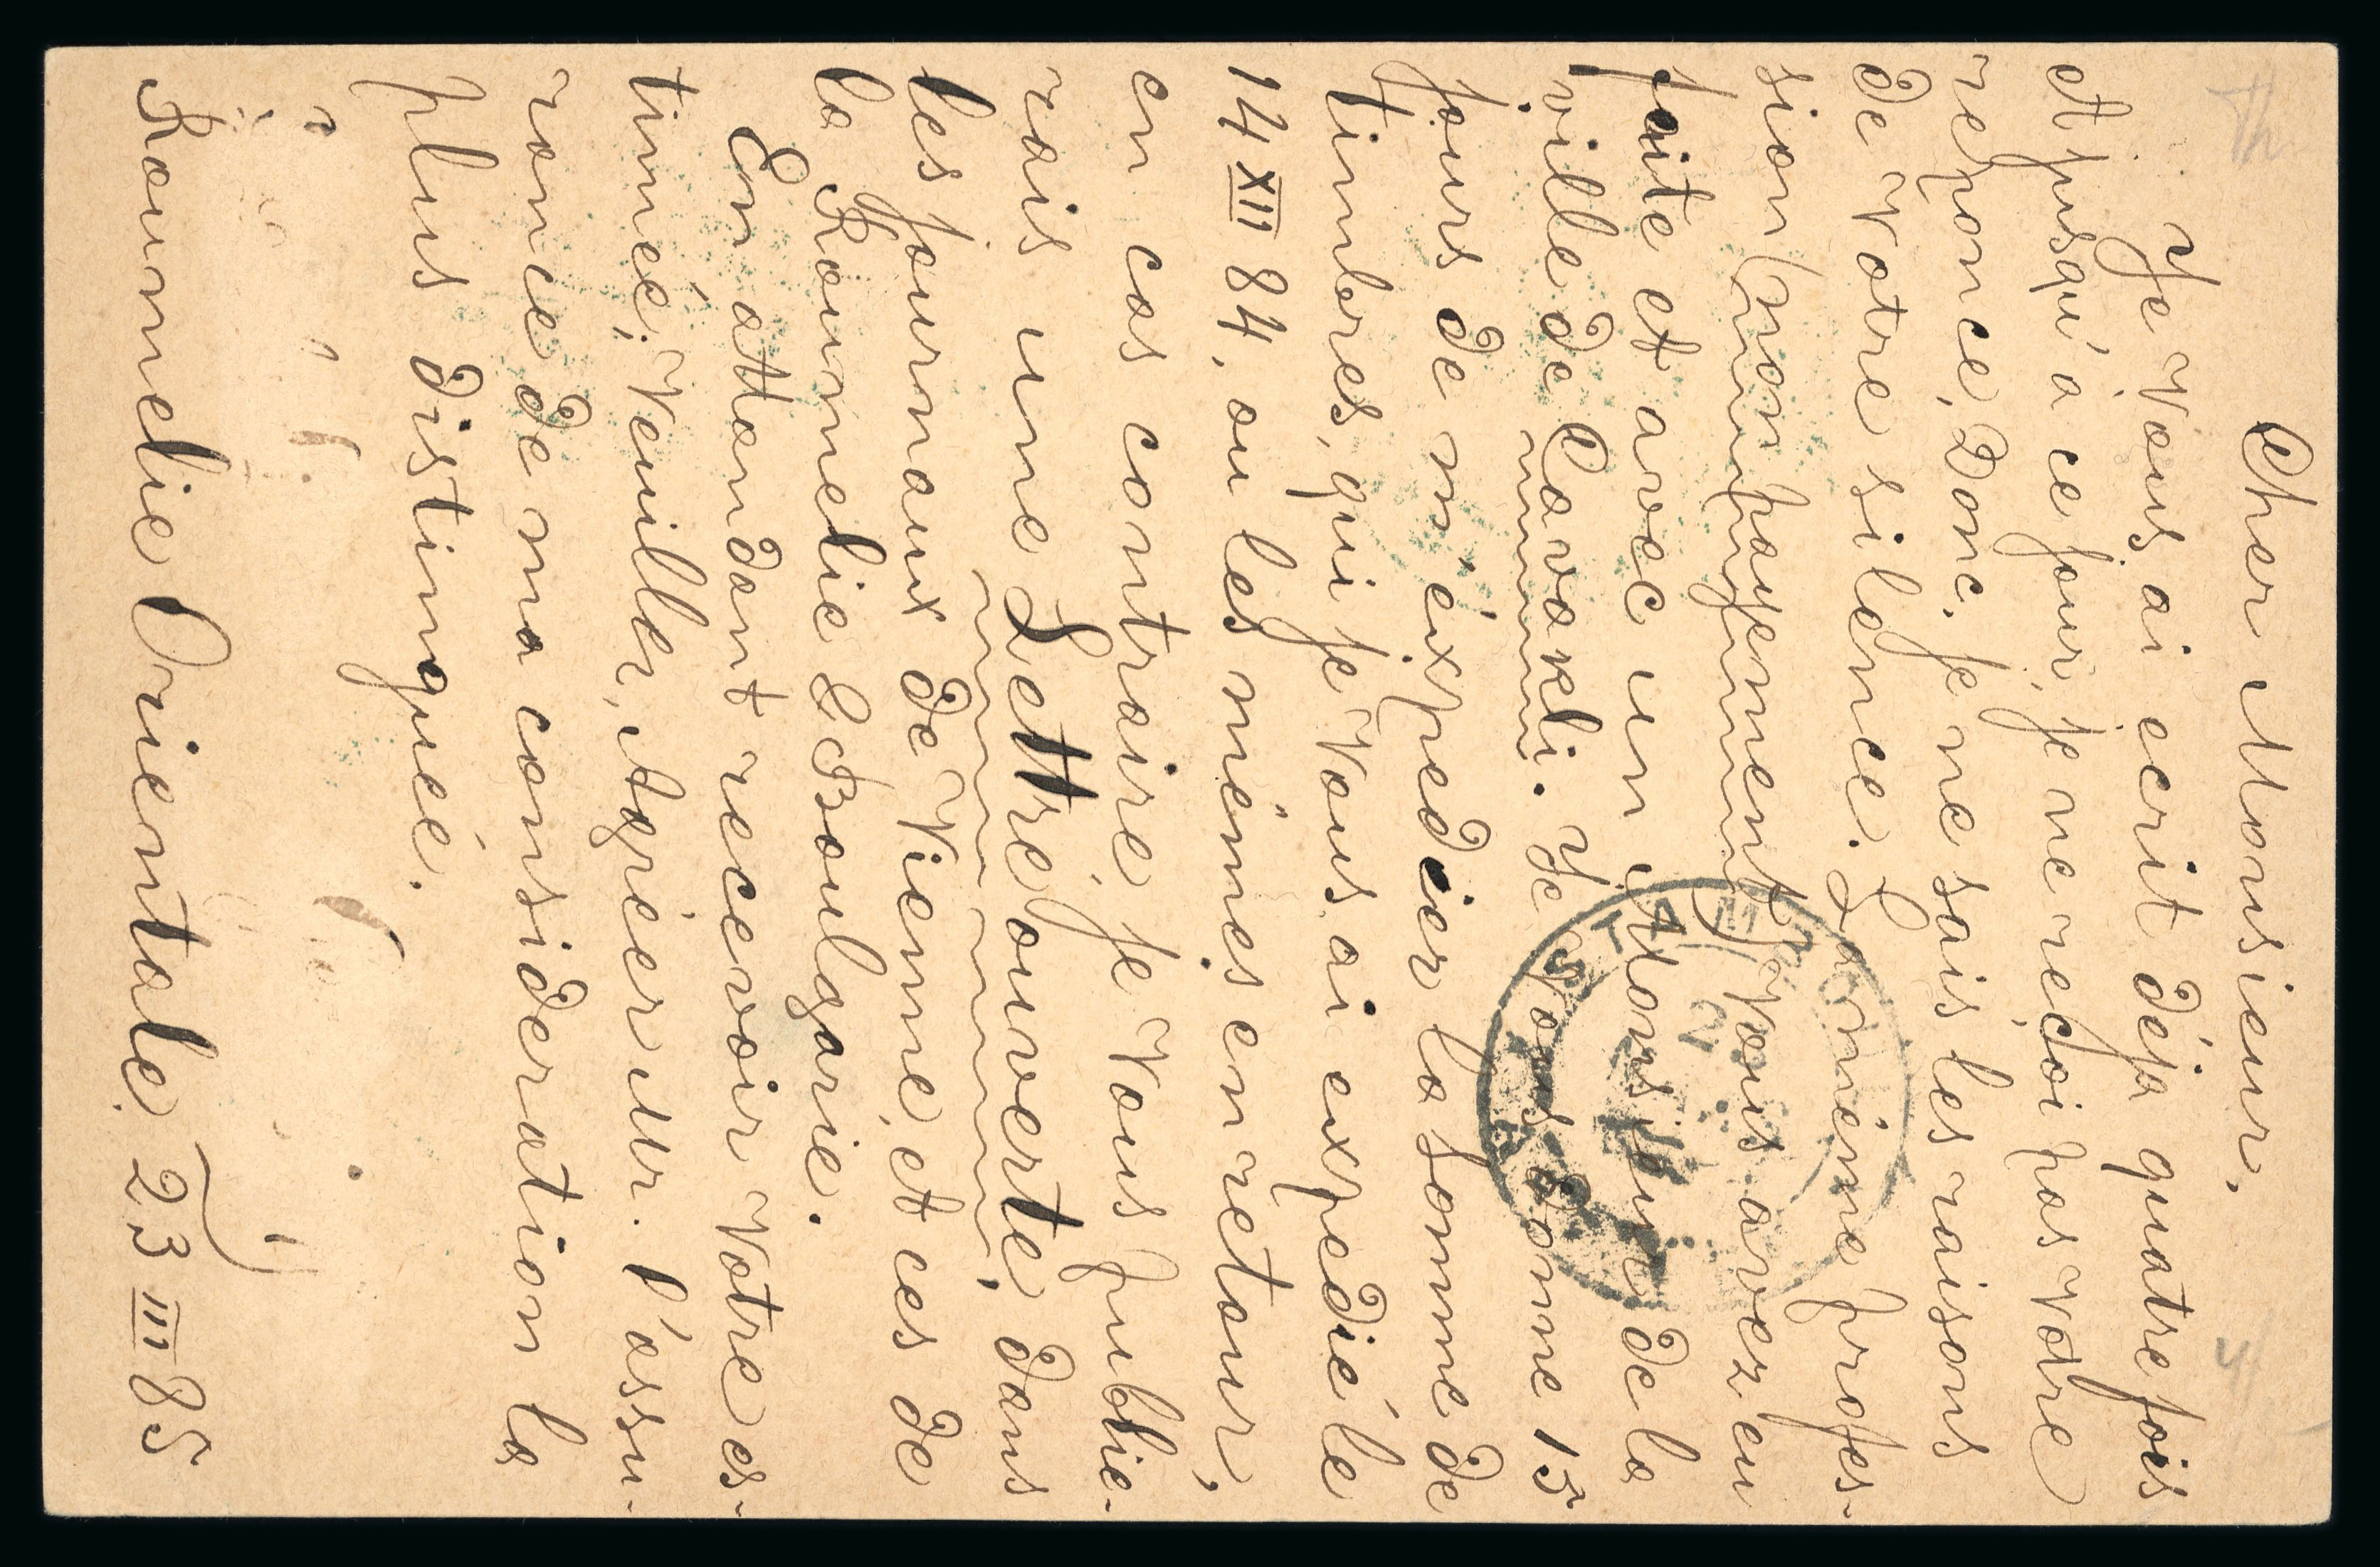 Cher Monsieur.
Je Vous ai ecrit déja quatre fois
et jusqu'a ce jour, je ne reçoi pas Votre
reponce, Donc, je ne sais les raisons
de Votre silence. La même profes-
sion (non payement) Vous avez eu
faite et avec un Monsieur de la
ville de Cavakli. Je Vous donne 15
jours de m'éxpedier la somme de
timbres, qui je Vous ai expedié le
14 XII 84, ou les mémes en retour,
en cas contraire, je Vous publie-
rais une Lettre ouverte, dans
les journaux de Vienne, et ces de
la Roumelie & Boulgarie.
En attandant recevoir Votre es-
timée, Veuiller, Agréer Mr. l'assu-
rance de ma consideration la
plus distinguée.
Roumelie Orientale, 23 III 85